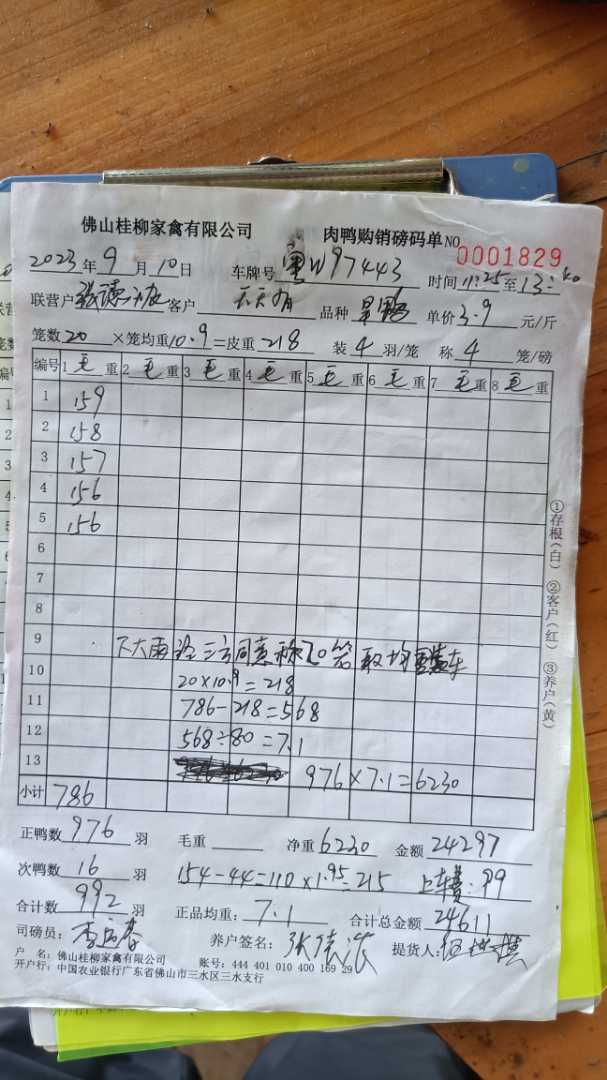 佛山桂柳家禽有限公司 肉鸭购销磅码单 NO 0001829
2023年9月10日 车牌号 粤W97443 时间11:25至13:40
联营户 张德 客户 天天有 品种 鸭 单价3.9 元/斤
笼数20×笼均重10.9=皮重218 装4羽/笼 称4笼/磅
编号 1毛重 2毛重 3毛重 4毛重 5毛重 6毛重 7毛重 8毛重
1 159
2 158
3 157
4 156
5 156
6
7
8
9 下大雨经三方同意称20笼取均重装车
10 20×10.9=218
11 786-218=568
12 568÷80=7.1
13 976×7.1=6230
小计 786
正鸭数976羽 毛重 净重6230 金额24297
次鸭数16羽 154-44=110×1.95=215 上车费:99
合计数992羽 正品均重:7.1 合计总金额24611
司磅员: 养户签名:张德 提货人:
户 名:佛山桂柳家禽有限公司 账号:444 401 010 400 169 29
开户行:中国农业银行广东省佛山市三水区三水支行
①存根(白) ②客户(红) ③养户(黄)